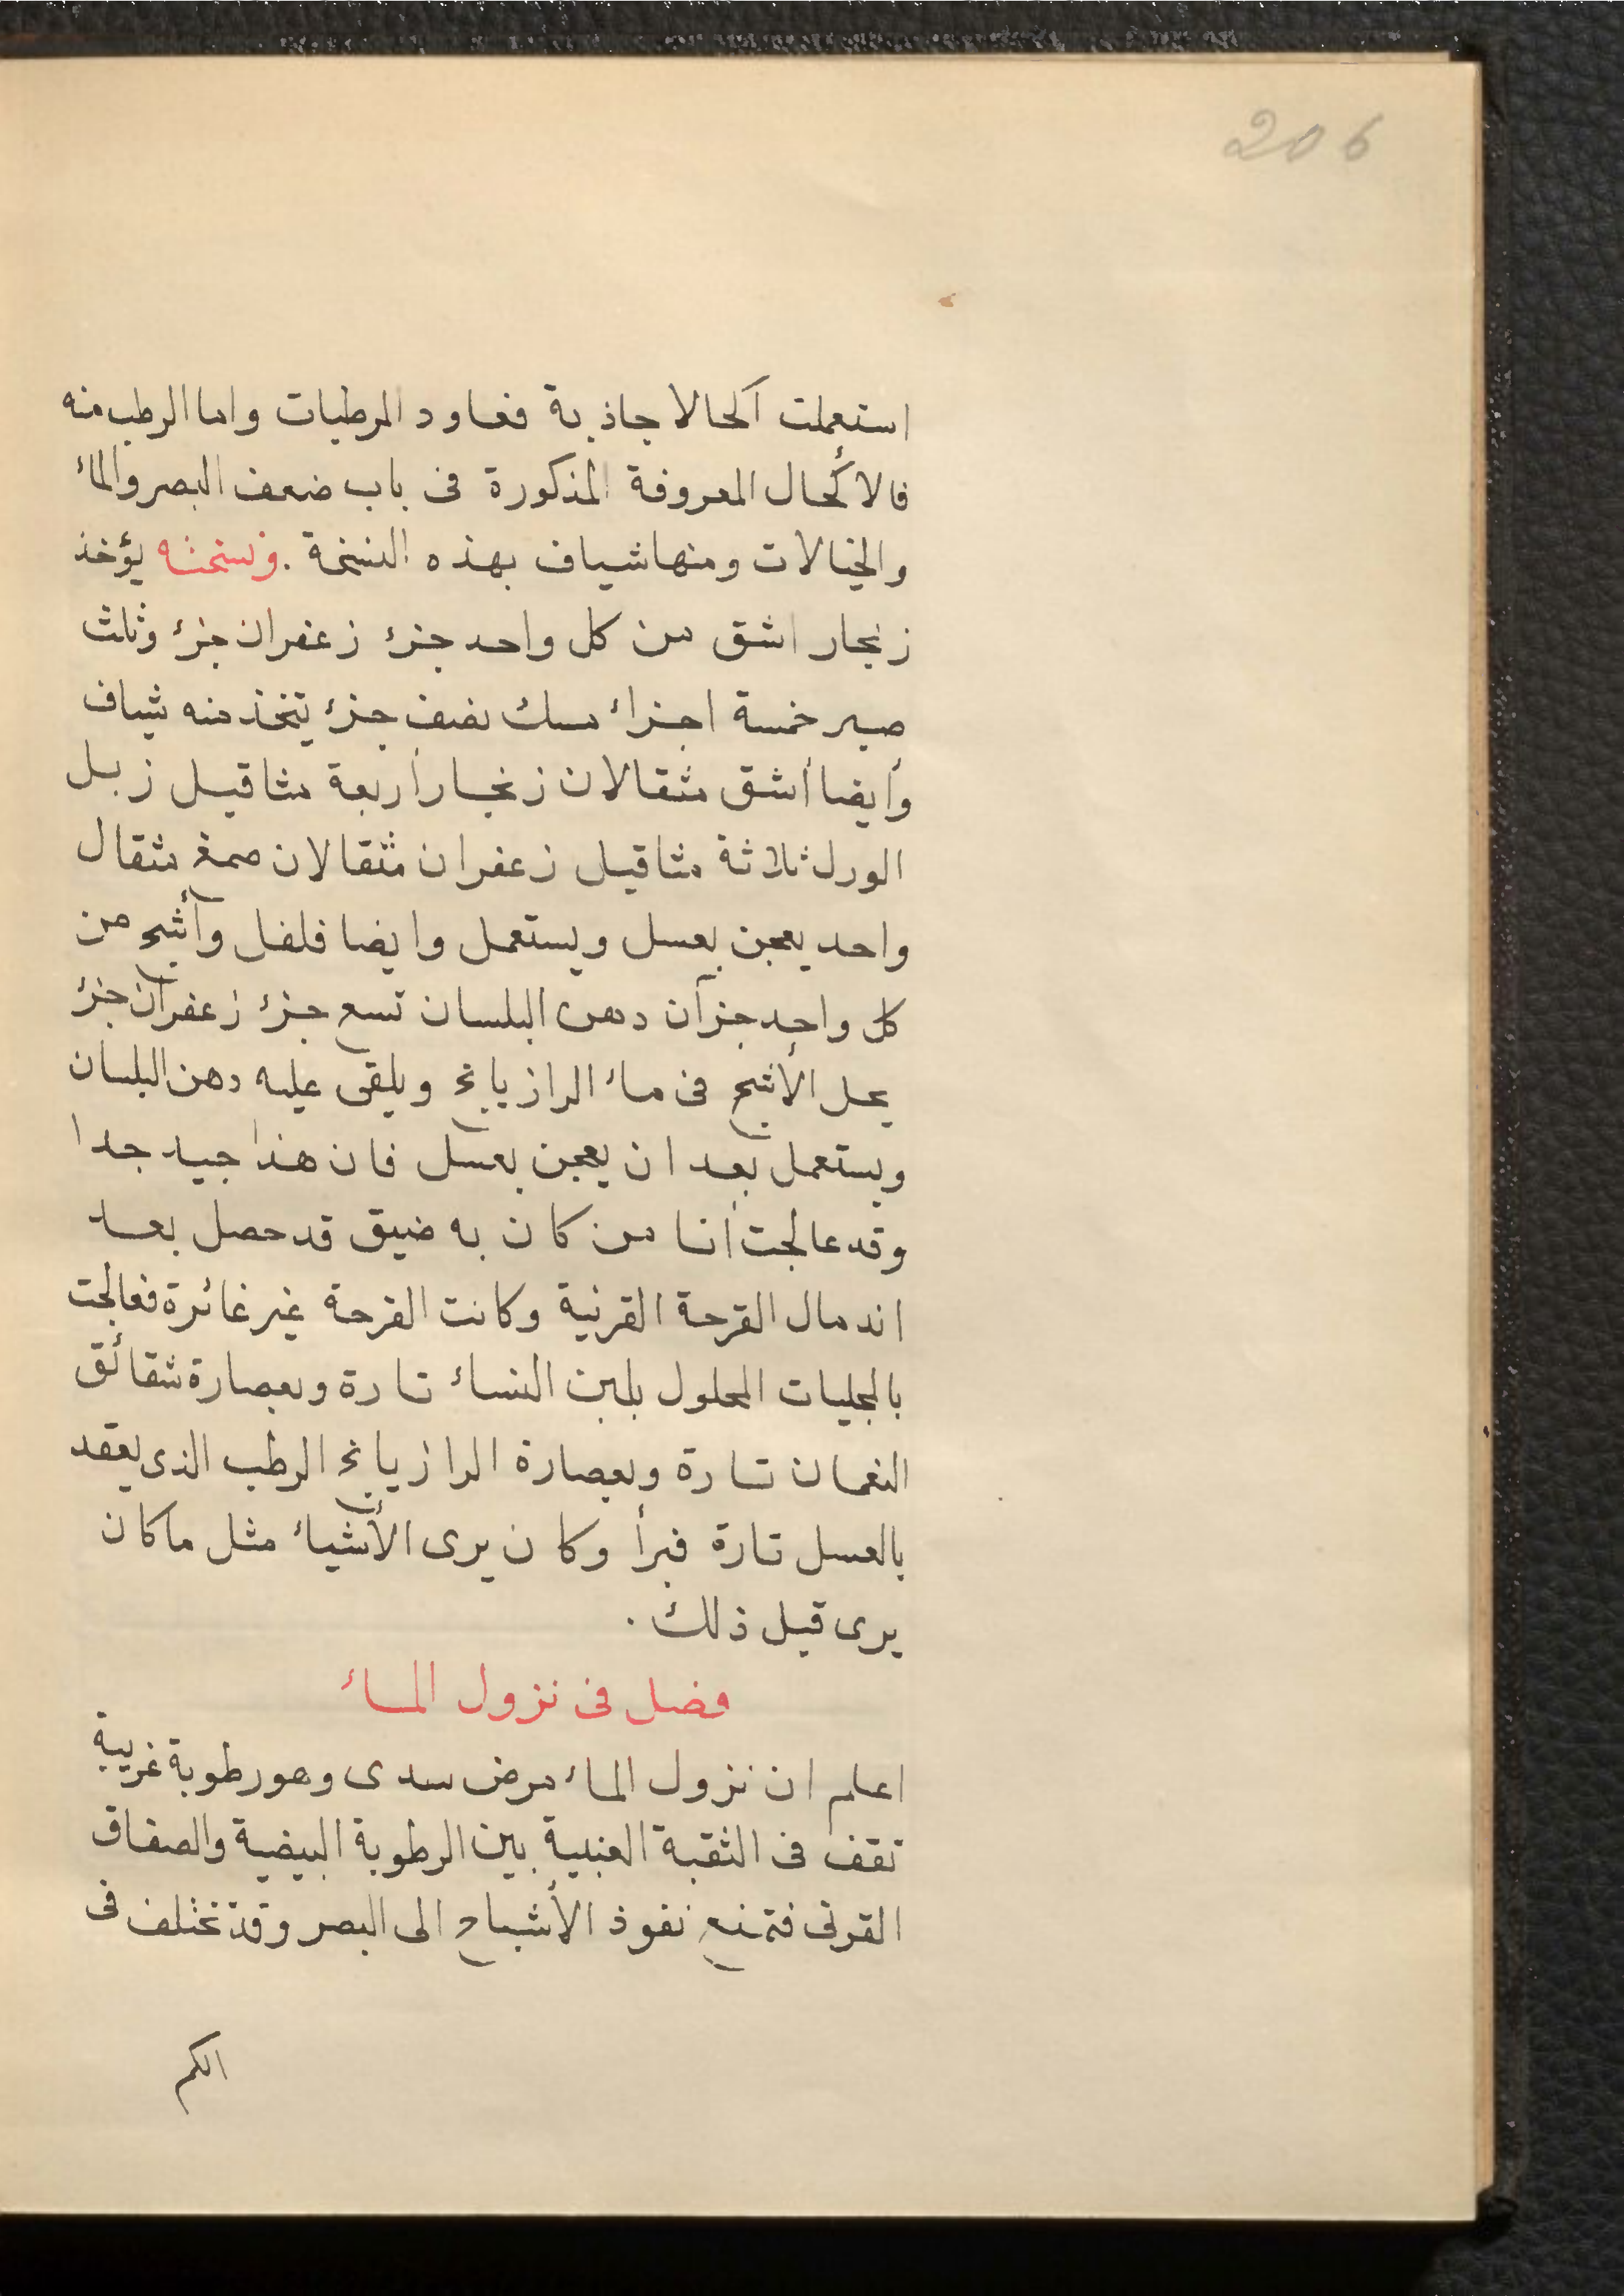 206
استعملت آكحالا جاذبة فعاود المرطبات واما الرطب منه
فالأكحال المعروفة المذكورة فى باب ضعف البصر والمائ
والخيالات ومنها شياف بهذه النسخة . ونسخته يؤخذ
زنجار اشق من كل واحد جزئ زعفران جزئ وثلث
صبر خمسة اجزائ مسك نصف جزئ يتخذ منه شياف
وأيضا أشق مثقالان زنجار أربعة مثاقيل زبل
الورل ثلاثة مثاقيل زعفران مثقالان صمغ مثقال
واحد يعجن بعسل ويستعمل وايضا فلفل وآشج من
كل واحد جزآن دهن البلسان تسع جزئ زعفران جزئ
يحل الأشج فى مائ الرازيانج ويلقى عليه دهن البلسان
ويستعمل بعد ان يعجن بعسل فان هذا جيد جدا
وقد عالجت أنا من كان به ضيق قد حصل بعد
اندمال القرحة القرنية وكانت القرحة غير غائرة فعالجت
بالجليات المحلول بلبن النسائ تارة وبعصارة شقائق
النعمان تارة وبعصارة الرازيانج الرطب الذى يعقد
بالعسل تارة فبرأ وكان يرى الأشيائ مثل ما كان
يرى قبل ذلك .
فصل فى نزول المائ
اعلم ان نزول المائ مرض سدى وهو رطوبة غريبة
تقف فى الثقبة العنبية بين الرطوبة البيضية والصفاق
القرنى فتمنع نفوذ الأشباح الى البصر وقد تختلف فى
الكم